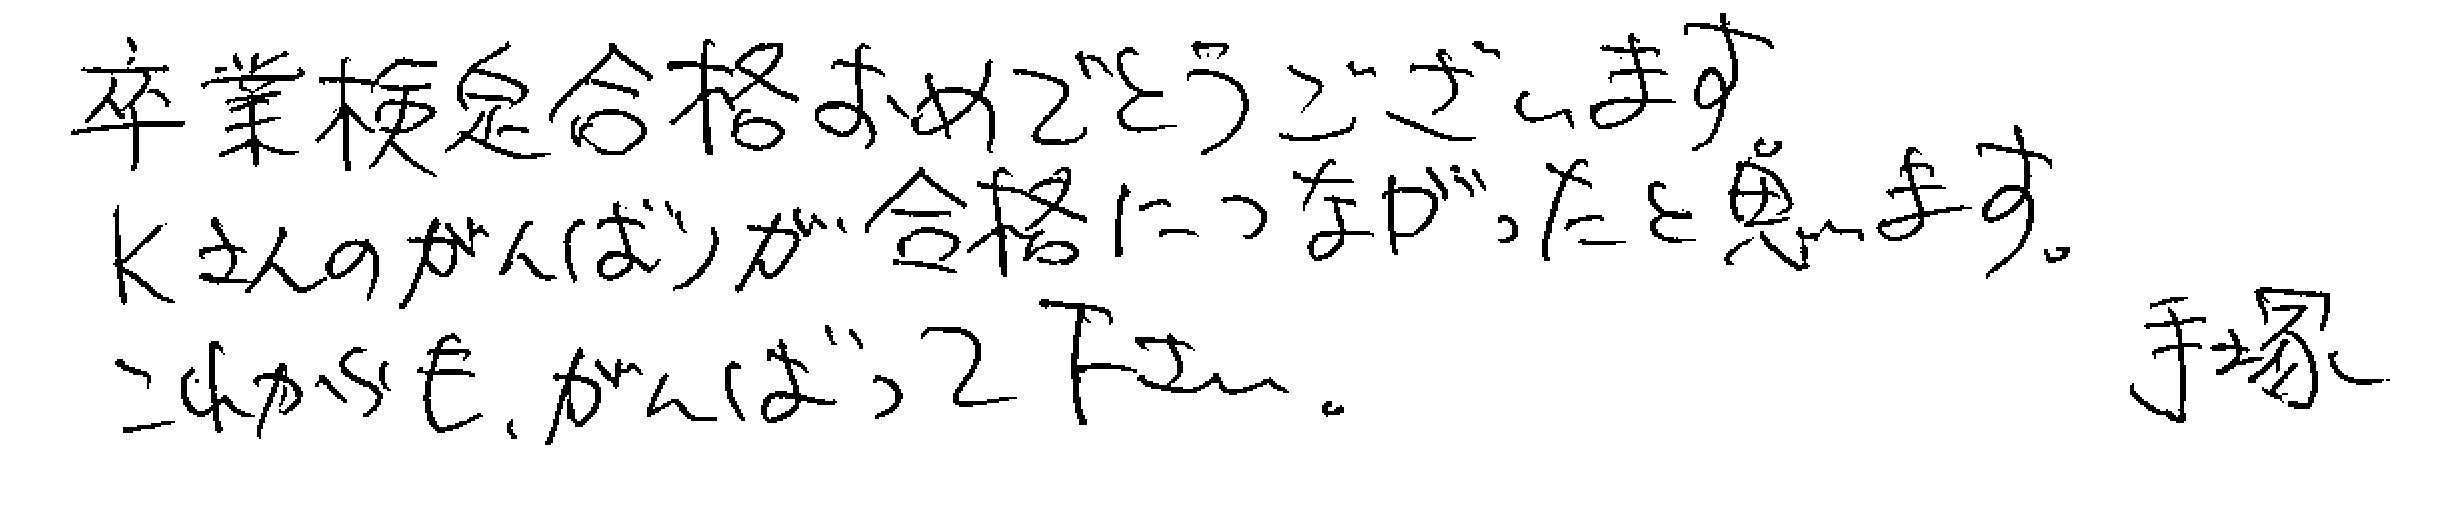 卒業検定合格おめでとうございます
Kさんのがんばりが合格につながったと思います。
これからも、がんばって下さい。
手塚